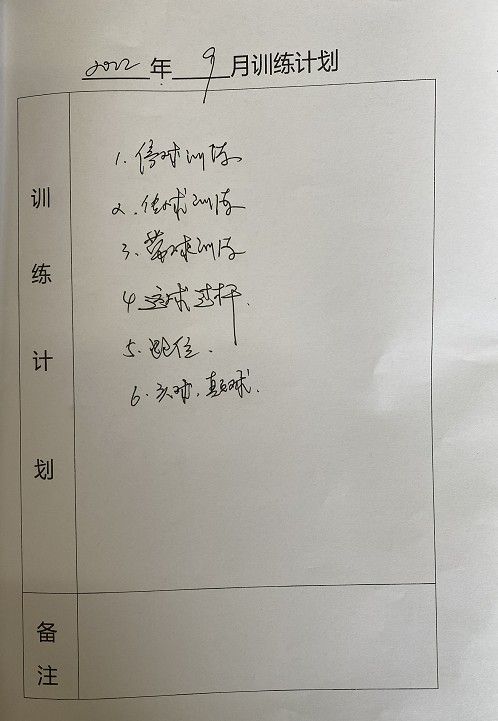 2022年9月训练计划
训练计划
1.停球训练
2.传球训练
3.带球训练
4.运球过杆.
5.跑位.
6.头球.颠球.
备注